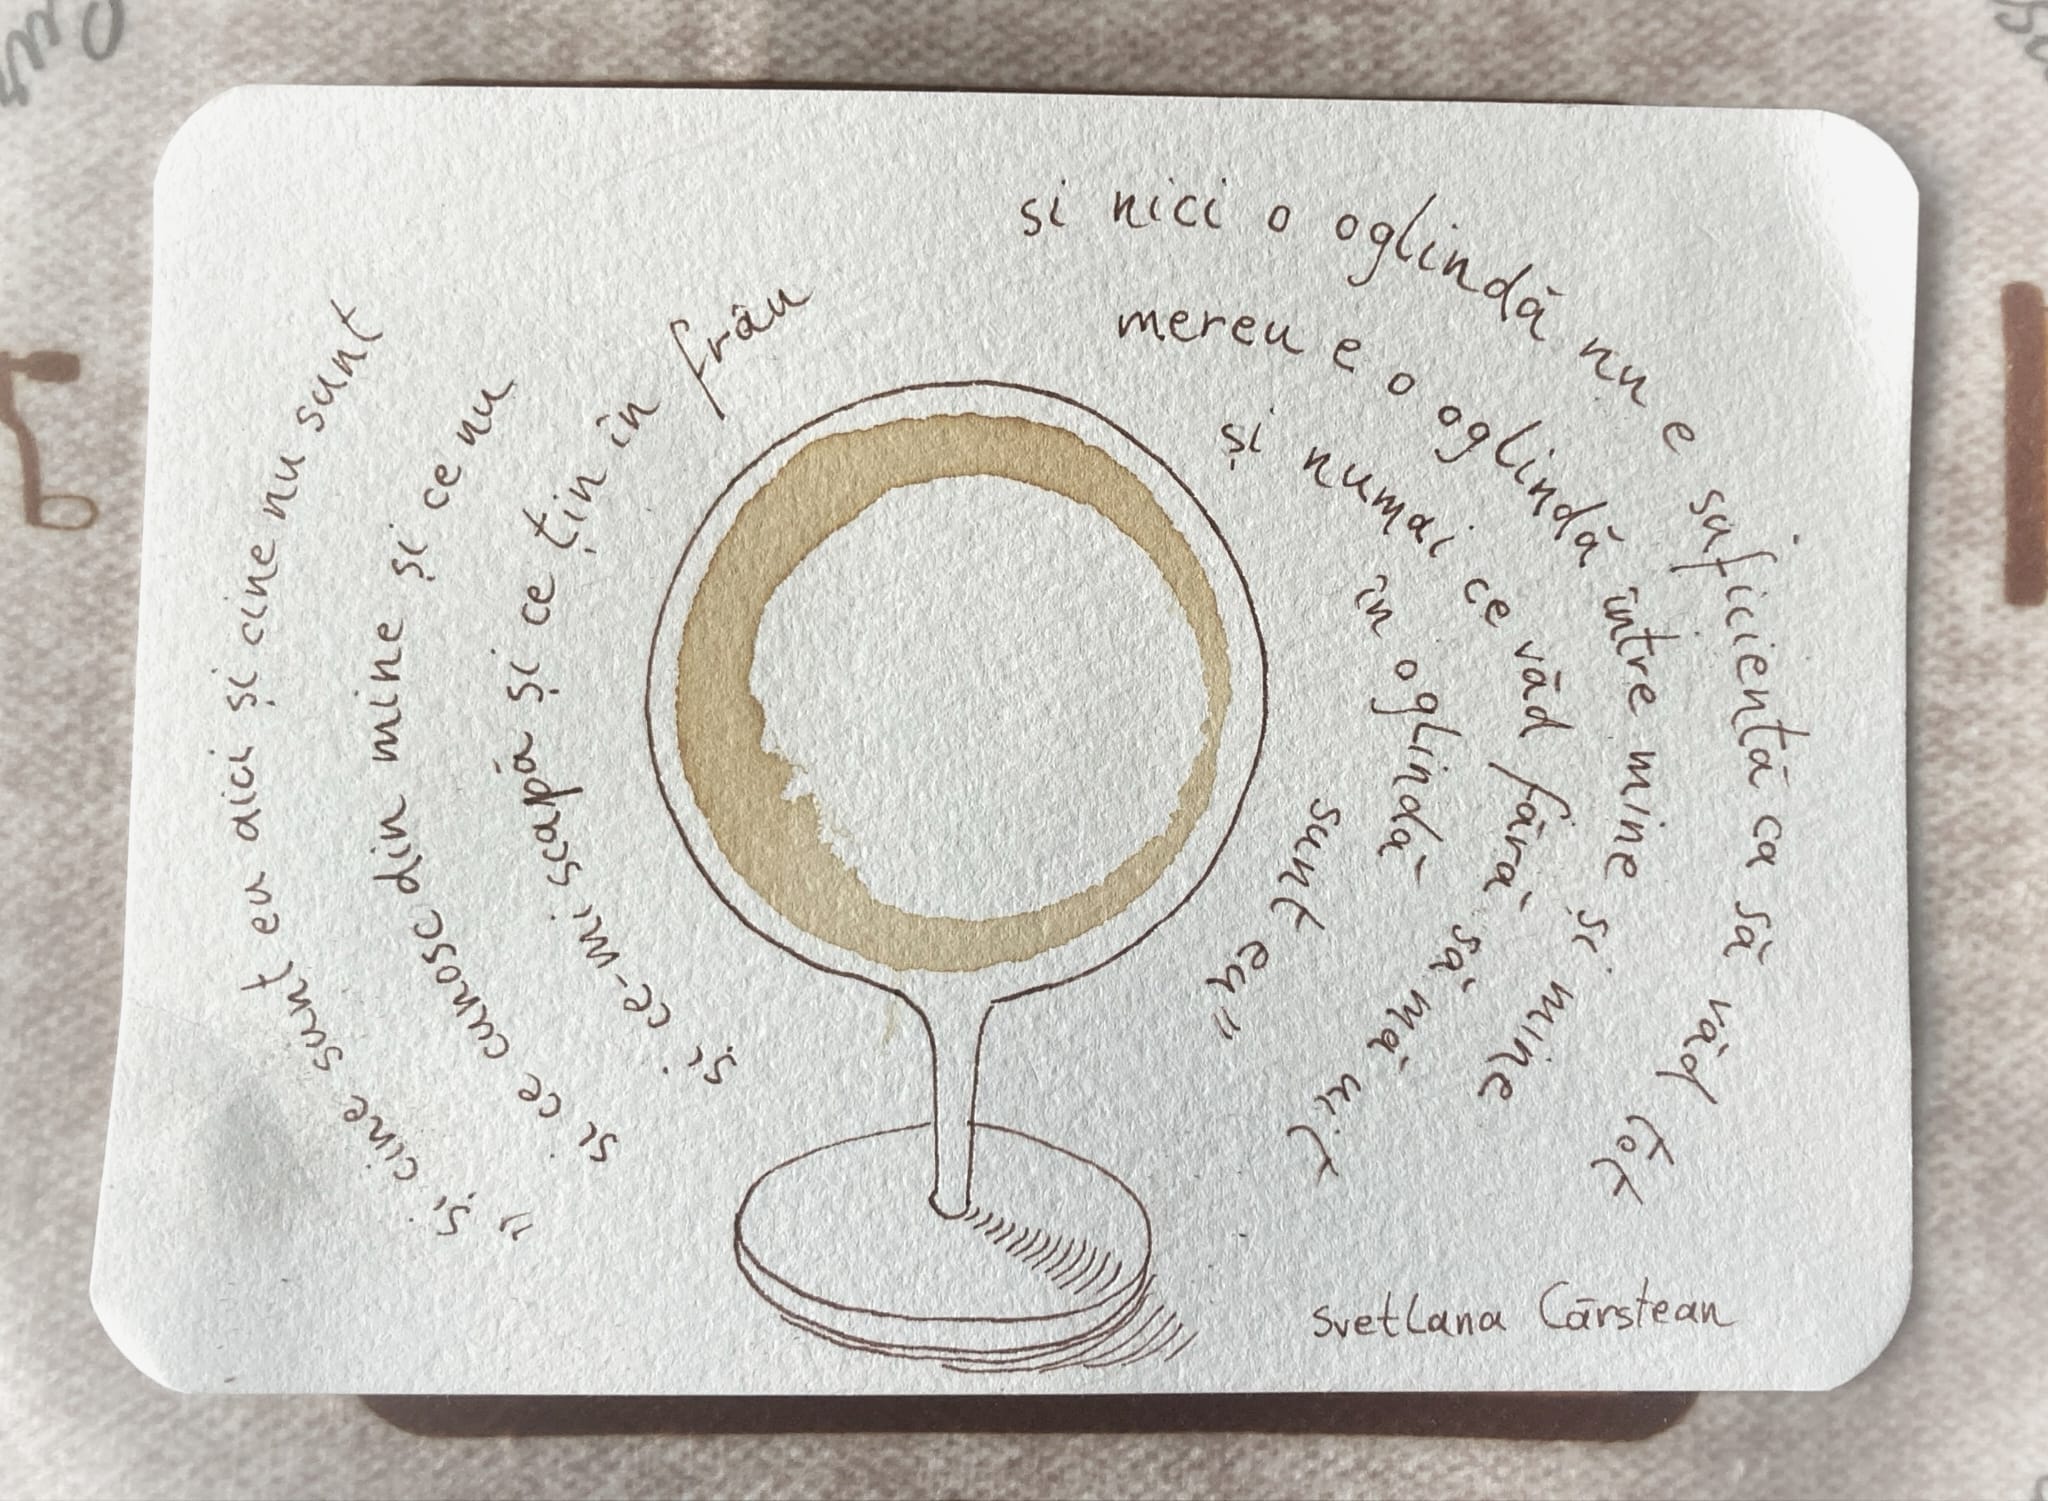 „ și cine sunt eu aici și cine nu sunt
si ce cunosc din mine și ce nu
și ce-mi scapă și ce țin în frâu
si nici o oglindă nu e suficientă ca să văd tot
mereu e o oglindă între mine și mine
și numai ce văd fără să mă uit
în oglindă
sunt eu"
Svetlana Cârstean